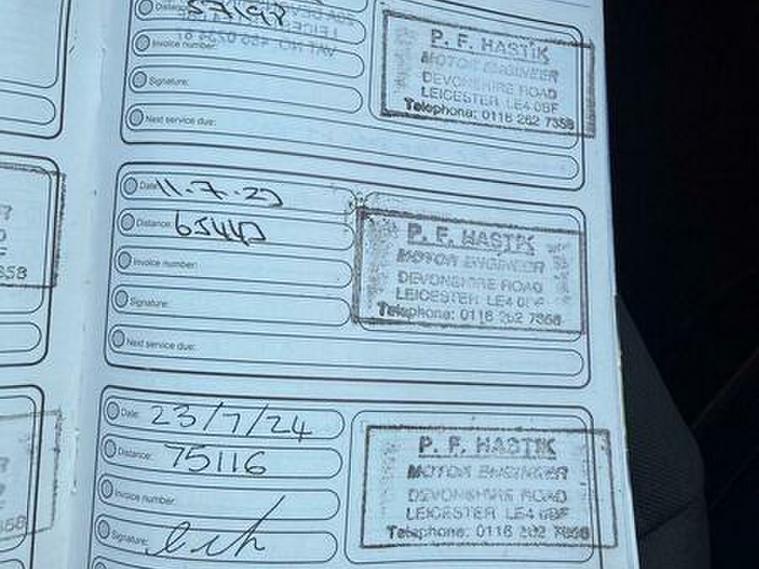 Distance:
Invoice number:
Signature:
Next service due:
P. F. HASTIK
MOTOR ENGINEER
DEVONSHIRE ROAD
LEICESTER LE4 0BF
Telephone: 0116 262 7358
Date: 11.7.23
Distance:
Invoice number:
Signature:
Next service due:
P. F. HASTIK
MOTOR ENGINEER
DEVONSHIRE ROAD
LEICESTER LE4
Telephone: 0116
Date: 23/7/24
Distance: 75116
Invoice number:
Signature:
P. F. HASTIK
MOTOR ENGINEER
DEVONSHIRE ROAD
LEICESTER LE4 0BF
Telephone: 0116